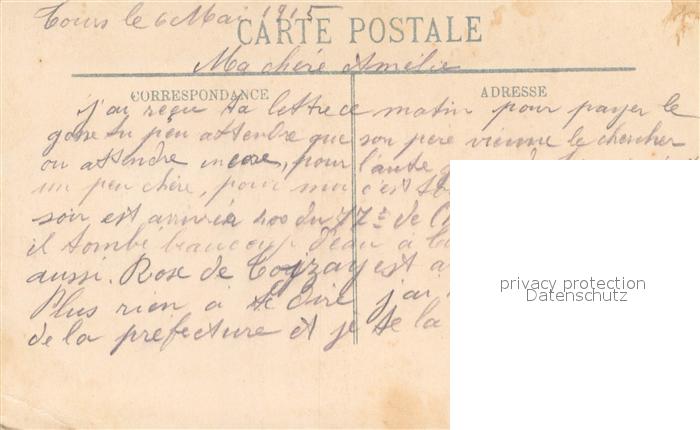 Tours le 6 Mai 1915
CARTE POSTALE
Ma chère Amélie
CORRESPONDANCE
ADRESSE
j'ai reçu ta lettre ce matin pour payer le
gosse tu peu attendre que son père vienne le chercher
ou attendre encore, pour l'autre
un peu chère, pour moi c'est
soir est arrivée 400 du 77e de
il tombe beaucoup d'eau à
aussi. Rose de est
Plus rien à te dire j'ai
de la préfecture et je te la
privacy protection
Datenschutz